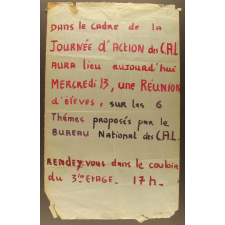 DANS LE CADRE DE LA
JOURNÉE d'ACTION des CAL
AURA LIEU AUJOURD'hui
MERCREDI 13, UNE RÉUNION
d'ÉLÈVES, SUR LES 6
Thèmes proposés par le
BUREAU National des CAL.
RENDEZ-vous dans le couloir
du 3ème ETAGE. 17h.